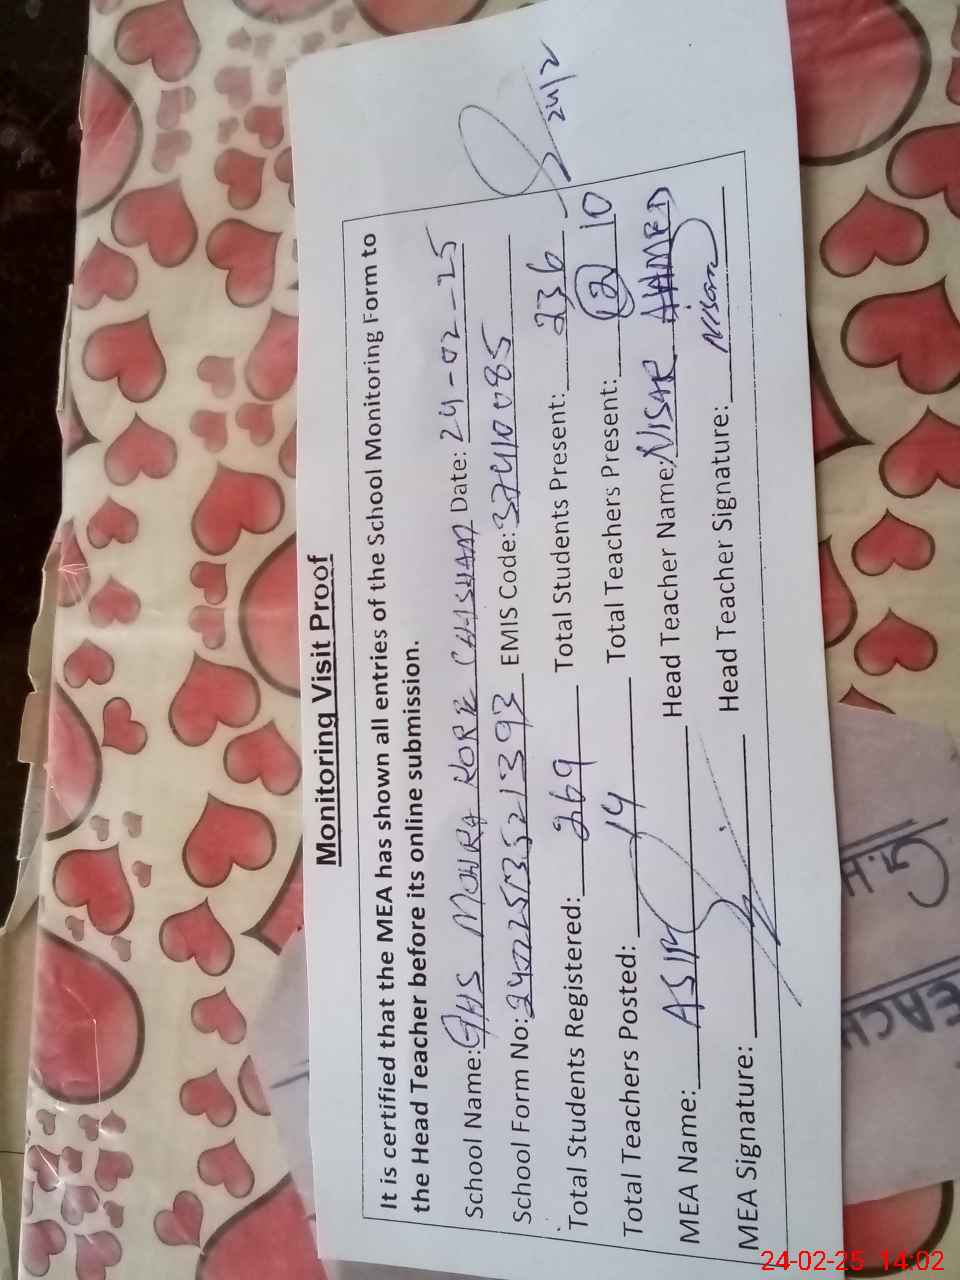 Monitoring Visit Proof
It is certified that the MEA has shown all entries of the School Monitoring Form to
the Head Teacher before its online submission.
School Name: GHS MOHRA KORE CHISHAM Date: 24-02-25
School Form No: EMIS Code: 37410085
Total Students Registered: 269 Total Students Present: 236
Total Teachers Posted: 14 Total Teachers Present: 12 10
MEA Name: ASIM Head Teacher Name: NISAR AHMED
MEA Signature: Head Teacher Signature: Nisar
24/2
24-02-25 14:02